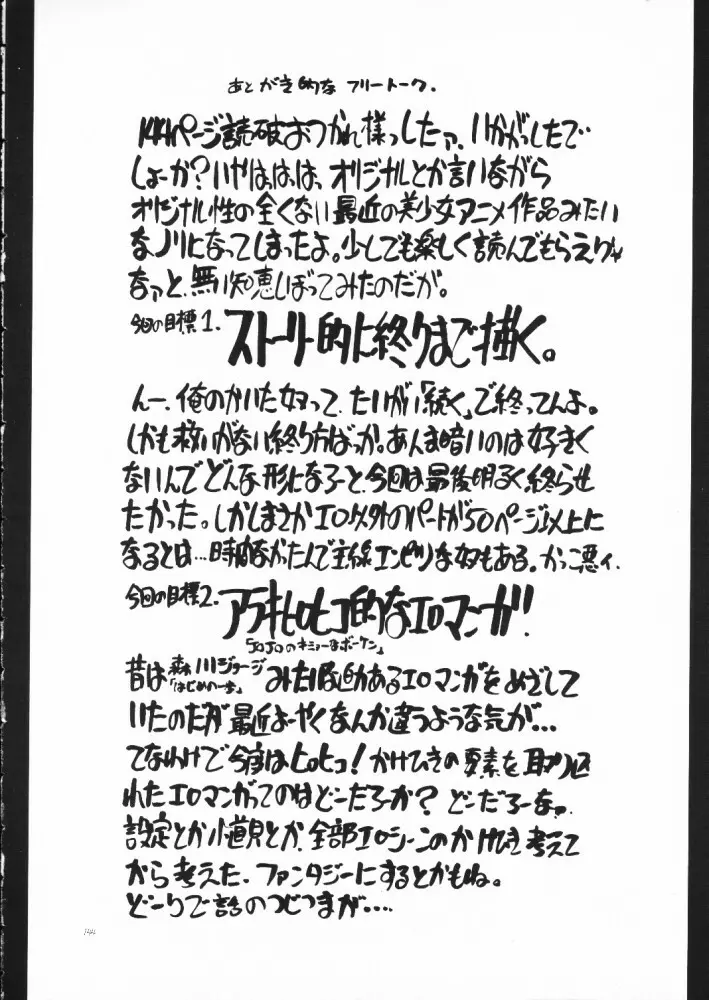 あとがき的な フリートーク.
144ページ読破おつかれ様っしたァ、いかがっしたで
しょーか?いやはっはっはっ、オリジナルとか言いながら
オリジナル性の全くない最近の美少女アニメ作品みたい
なノリになってしまったよ。少しでも楽しく読んでもらえりゃ
なァっと、無い知恵しぼってみたのだが。
今回の目標1.
ストーリー的に終りまで描く。
んー、俺のかいた奴って、たいがい「続く」で終ってんよ。
しかも救いがない終り方ばっか。あんま暗いのは好きく
ないんでどんな形になろーと、今回は最後明るく終らせ
たかった。しかしまさかエロ以外のパートが50ページ以上に
なるとは…時間なかたんで主線エンピツな奴もある。かっこ悪ィ.
今回の目標2.
アラキヒロヒコ的なエロマンガ!
「JOJOのキミョーなボーケン」
昔は 森川ジョージ みたい躍動あるエロマンガをめざして
「はじめの一歩」
いたのだが最近よーやくなんか違うような気が…
てなわけで今度はヒロヒコ!かけひきの要素を取り込
れたエロマンガってのはどーだろーか?どーだろーなァ.
設定とか小道具とか、全部エロシーンのかけひき考えて
から考えた.ファンタジーにするとかもね。
どーりで話のつじつまが….
144